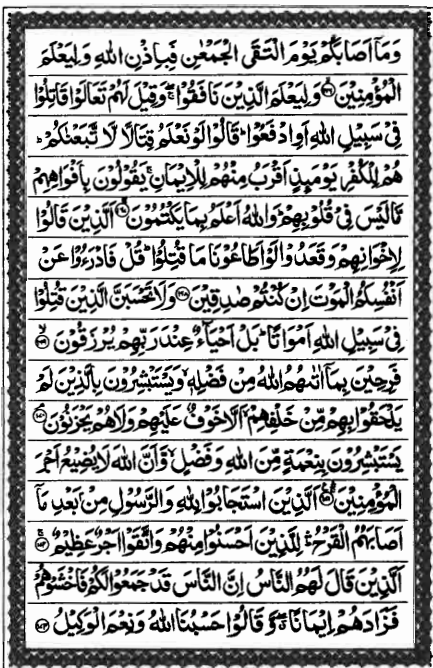 وَمَآ اَصَابَكُمْ يَوْمَ الْتَقَى الْجَمْعٰنِ فَبِاِذْنِ اللّٰهِ وَلِيَعْلَمَ
الْمُؤْمِنِيْنَ ﴿۱۶۶﴾ وَلِيَعْلَمَ الَّذِيْنَ نَافَقُوْا ۚ وَقِيْلَ لَهُمْ تَعَالَوْا قَاتِلُوْا
فِيْ سَبِيْلِ اللّٰهِ اَوِادْفَعُوْا ؕ قَالُوْا لَوْ نَعْلَمُ قِتَالًا لَّا تَّبَعْنٰكُمْ ؕ
هُمْ لِلْكُفْرِ يَوْمَئِذٍ اَقْرَبُ مِنْهُمْ لِلْاِيْمَانِ ۚ يَقُوْلُوْنَ بِاَفْوَاهِهِمْ
مَّا لَيْسَ فِيْ قُلُوْبِهِمْ ؕ وَاللّٰهُ اَعْلَمُ بِمَا يَكْتُمُوْنَ ﴿۱۶۷﴾ اَلَّذِيْنَ قَالُوْا
لِاِخْوَانِهِمْ وَقَعَدُوْا لَوْ اَطَاعُوْنَا مَا قُتِلُوْا ؕ قُلْ فَادْرَءُوْا عَنْ
اَنْفُسِكُمُ الْمَوْتَ اِنْ كُنْتُمْ صٰدِقِيْنَ ﴿۱۶۸﴾ وَلَا تَحْسَبَنَّ الَّذِيْنَ قُتِلُوْا
فِيْ سَبِيْلِ اللّٰهِ اَمْوَاتًا ؕ بَلْ اَحْيَآءٌ عِنْدَ رَبِّهِمْ يُرْزَقُوْنَ ﴿۱۶۹﴾
فَرِحِيْنَ بِمَآ اٰتٰىهُمُ اللّٰهُ مِنْ فَضْلِهٖ ۙ وَيَسْتَبْشِرُوْنَ بِالَّذِيْنَ لَمْ
يَلْحَقُوْا بِهِمْ مِّنْ خَلْفِهِمْ ۙ اَلَّا خَوْفٌ عَلَيْهِمْ وَلَا هُمْ يَحْزَنُوْنَ ﴿۱۷۰﴾
يَسْتَبْشِرُوْنَ بِنِعْمَةٍ مِّنَ اللّٰهِ وَفَضْلٍ ۙ وَّاَنَّ اللّٰهَ لَا يُضِيْعُ اَجْرَ
الْمُؤْمِنِيْنَ ﴿۱۷۱﴾ اَلَّذِيْنَ اسْتَجَابُوْا لِلّٰهِ وَالرَّسُوْلِ مِنْۢ بَعْدِ مَآ
اَصَابَهُمُ الْقَرْحُ ؕ لِلَّذِيْنَ اَحْسَنُوْا مِنْهُمْ وَاتَّقَوْا اَجْرٌ عَظِيْمٌ ﴿۱۷۲﴾
اَلَّذِيْنَ قَالَ لَهُمُ النَّاسُ اِنَّ النَّاسَ قَدْ جَمَعُوْا لَكُمْ فَاخْشَوْهُمْ
فَزَادَهُمْ اِيْمَانًا ۖۗ وَّقَالُوْا حَسْبُنَا اللّٰهُ وَنِعْمَ الْوَكِيْلُ ﴿۱۷۳﴾